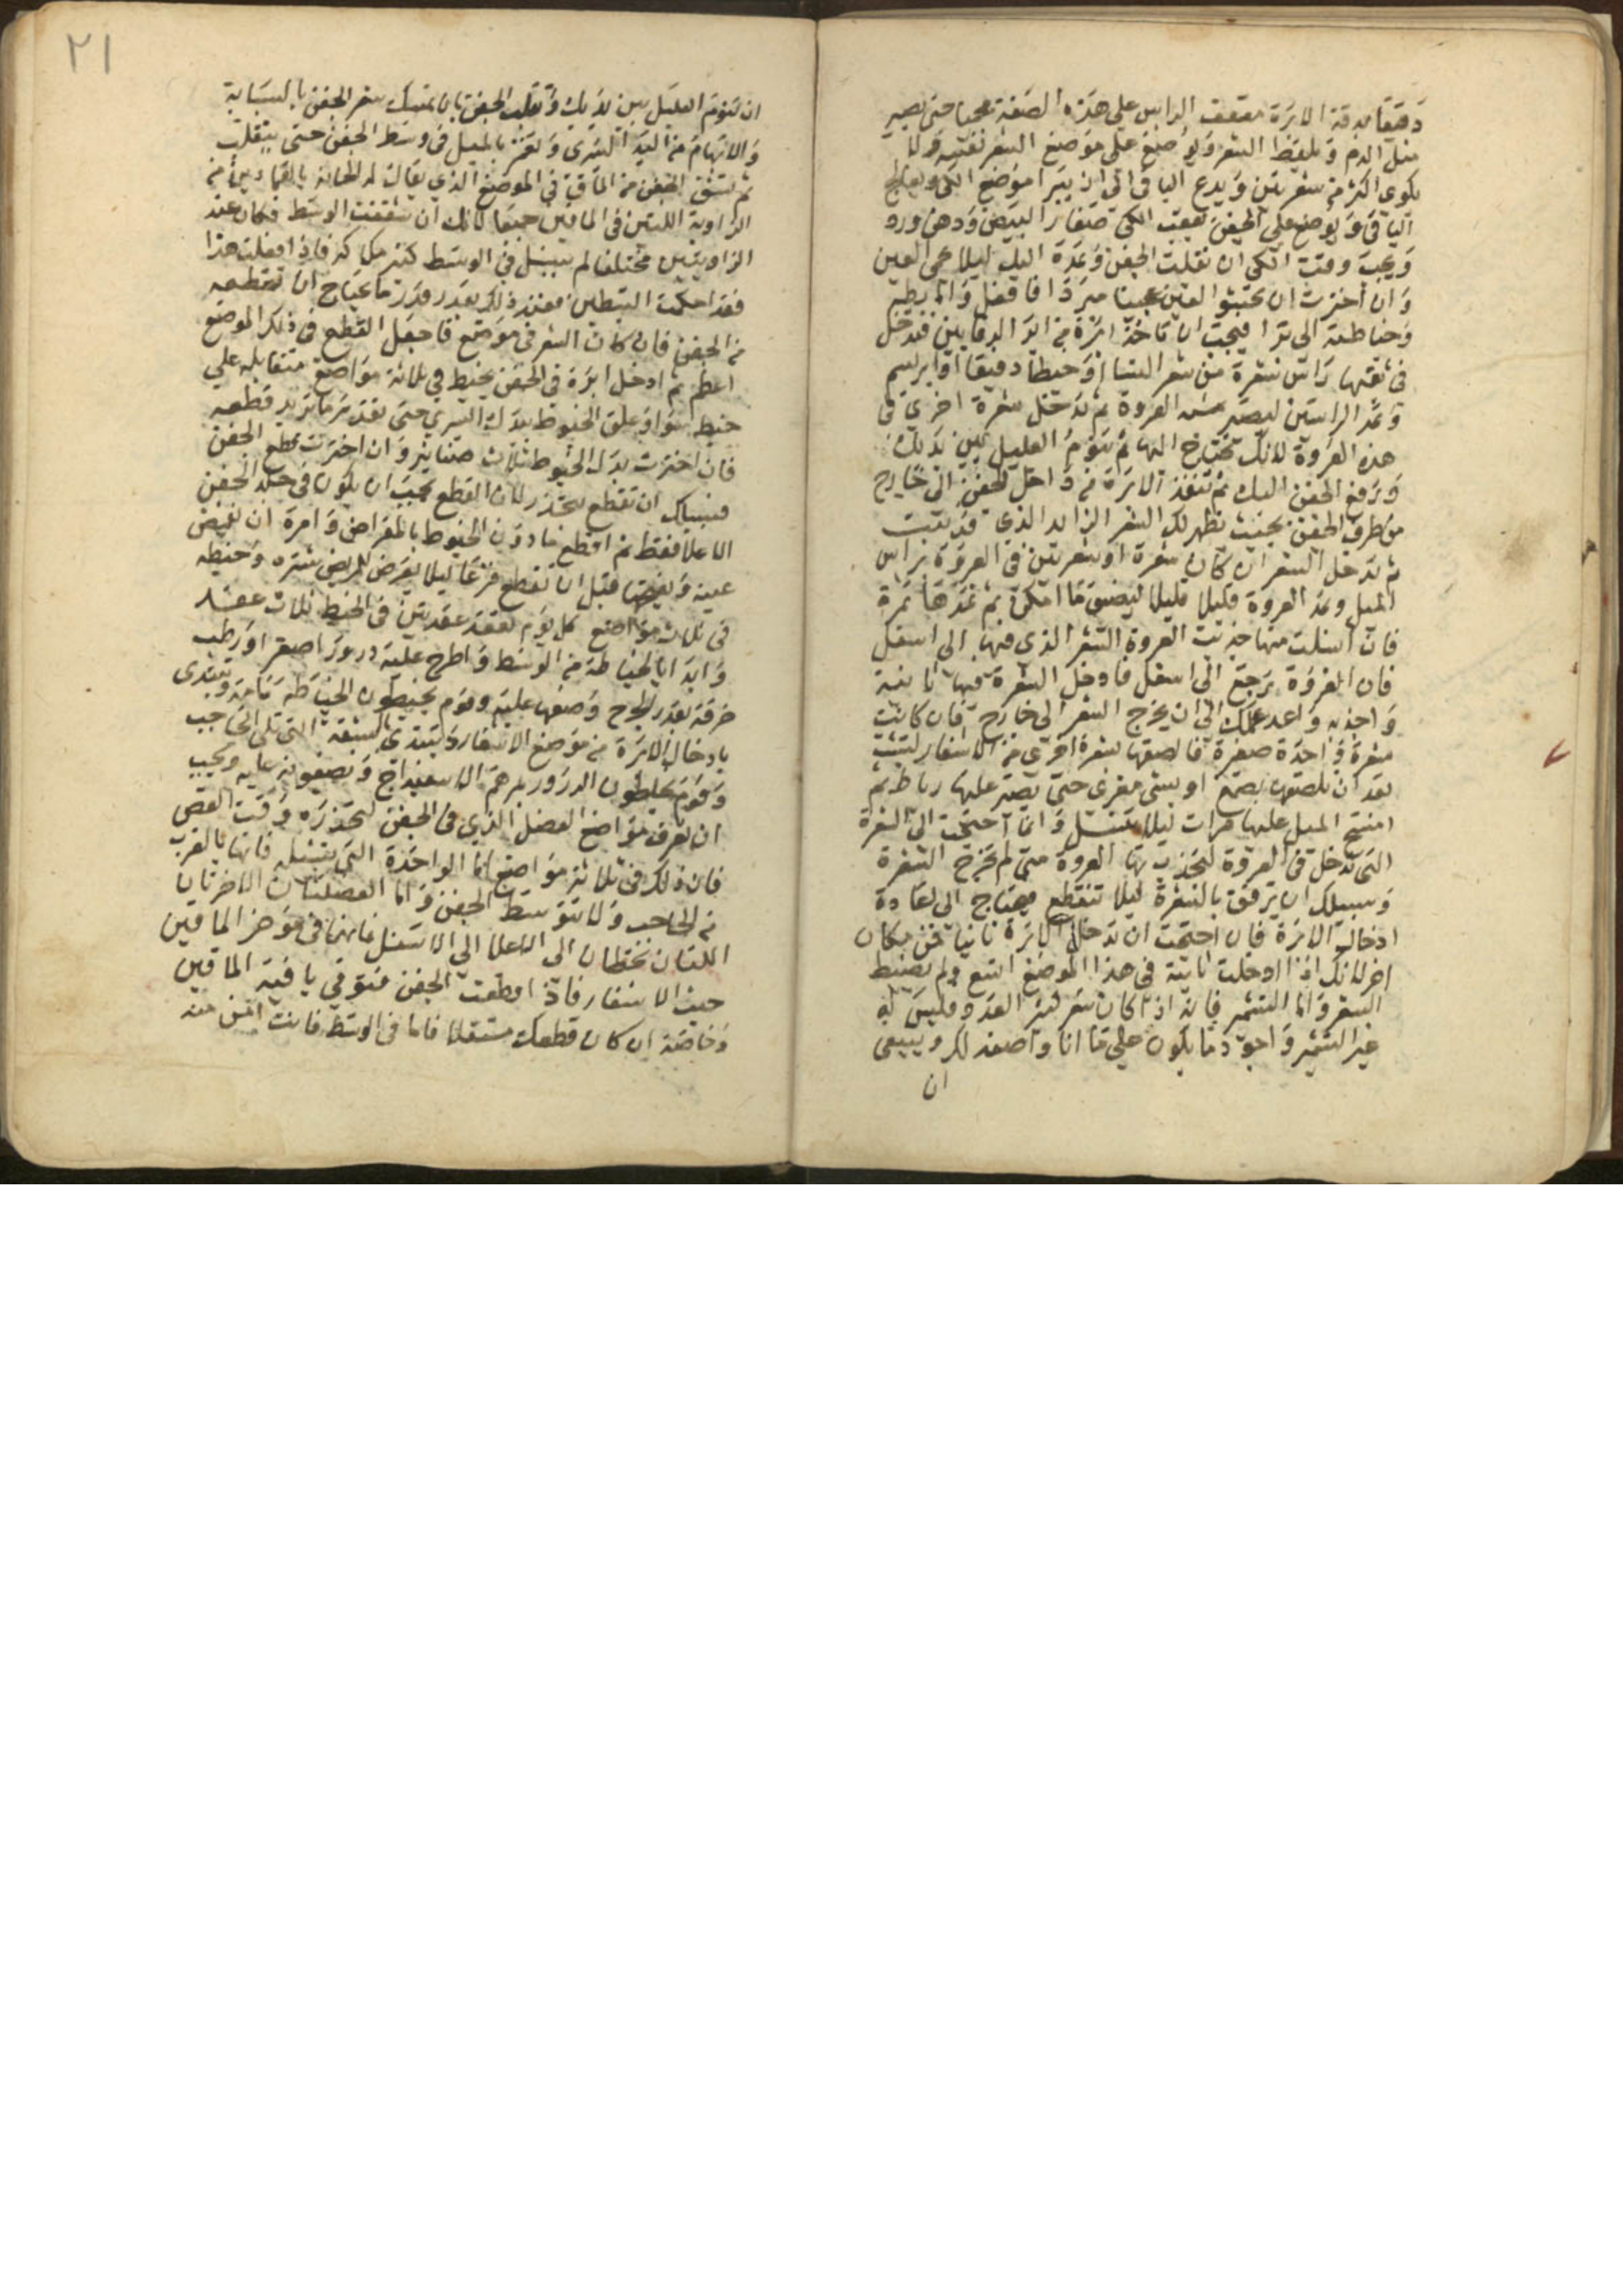 دقيقا بدقة الابرة معقف الراس علي هذه الصفة محما حتى يصير
مثل الدم و يلقط الشعر و يوضع على موضع الشعر نفسه ولا
يكوى اكثر من شعرتين و يدع الباقى الى ان يبرا موضع الكى و يعالج
الباقى و يوضع علي الجفن بعقب الكى صفار البيض و دهن ورد
و يجب وقت الكى ان تقلب الجفن و تمده اليك ليلا يحمى العين
و ان اخترت ان تحشوا العين عجينا مبردا فافعل و اما نظم
فيجب ان تاخذ ابرة من ابر الرفايين فتدخل
فى ثقبها راس شعرة من شعر النسا او خيطا دقيقا او ابريسم
و تمد الراسين ليصير العروة ثم تدخل شعرة اخرى فى
هذه العروة لانك تحتاج اليها ثم تنوم العليل بين يديك
و ترفع الجفن اليك ثم تنفذ الابرة من داخل الجفن الى خارج
من طرف الجفن بحيث يظهر لك الشعر الزايد الذي قد نبت
ثم تدخل الشعر ان كان شعرة او شعرتين فى العروة براس
الميل و تمد العروة قليلا قليلا ليضيق ما امكن ثم تمدها بمرة
فان انسلت منها جذبت العروة الشعر الذى فيها الى اسفل
فان العروة ترجع الى اسفل فادخل الشعرة فيها ثانية
و اجذبه و اعد عملك الى ان يخرج الشعر الى خارج فان كانت
شعرة واحدة صغيرة فالصقها بشعرة اخرى من الاشفار لتثبت
بعد ان تلصقها بصمغ او بشي مغرى حتى يصير عليها رباط ثم
امسح الميل عليها مرات ليلا تنسل و انما احتجت الى الشعرة
التى تدخل فى العروة لتجذب بها العروة متى لم تخرج الشعرة
و سبيلك ان ترفق بالشعرة ليلا تنقطع فيحتاج الى اعادة
ادخال الابرة فان احتجت ان تدخل الابرة ثانيا فمن مكان
اخر لانك اذا ادخلت ثانية فى هذا الموضع اتسع ولم يضبط
الشعر و اما التشمير فانه اذا كان شعر كثير العدد فليس له
غير التشمير و اجود ما يكون على ما انا واصفه لك و ينبغى
ان
٢١
ان تنوم العليل بين يديك و تقلب الجفن بان تمسك شعر الجفن بالسبابة
و الابهام من اليد اليسرى و تغمز بالميل فى وسط الجفن حتى ينقلب
ثم تشق الجفن من الماق فى الموضع الذي يقال له بالقمادين من
الزاوية اللتين فى الماقين جميعا لانك ان شققت الوسط فكان عند
الزاويتين مختلفا لم ينسل فى الوسط فاذا فعلت هذا
فقد احكمت التبطين فعند ذلك بقدر قدر ما تحتاج ان تقطعه
من الجفن فان كان الشعر فى موضع فاجعل القطع فى ذلك الموضع
اعظم ثم ادخل ابرة فى الجفن بخيط فى ثلاثة مواضع متقابله على
خيط سوا و علق الخيوط بيدك اليسرى حتى تقدر ما تريد قطعه
فان اخترت بدل الخيوط ثلاث صنانير و ان اخترت قطع الجفن
فسبيلك ان تقطع بحذر لان القطع يجب ان يكون فى جلد الجفن
الاعلا فقط ثم اقطع مادون الخيوط بالمقراض و امره ان يغمض
عينه و يفتحها قبل ان تقطع فزعا ليلا يعرض للمريض شتره و خيطه
فى ثلاث مواضع كل يوم تعقد عقدتين فى الخيط ثلاث عقد
و ابدا بالخياطة من الوسط و اطرح عليه درور اصفر او رطب
خرقة بقدر الجرح و ضعها عليه و قوم يخيطون الخياطة و تبتدى
بادخال الابرة من موضع الاشفار و تبتدى بالشفة التى تلى الحاجب
و قوم يخلطون الدرور بمرهم الاسفيداج و يضعونه عليه و يجب
ان تعرف مواضع العضل الذي فى الجفن لتحذره وقت القص
فان ذلك فى ثلاثة مواضع اما الواحدة التى تشيله فانها بالقرب
من الحاجب و لا تتوسط الجفن و اما العضلتان الاخرتان
اللتان تحطان الى الاعلا الى الاسفل فانهما فى موخر الماقين
حيث الاشفار فاذا قطعت الجفن فتوقى ناحية الماقين
و خاصة ان كان قطعك مستقلا فاما فى الوسط فانت امن منه